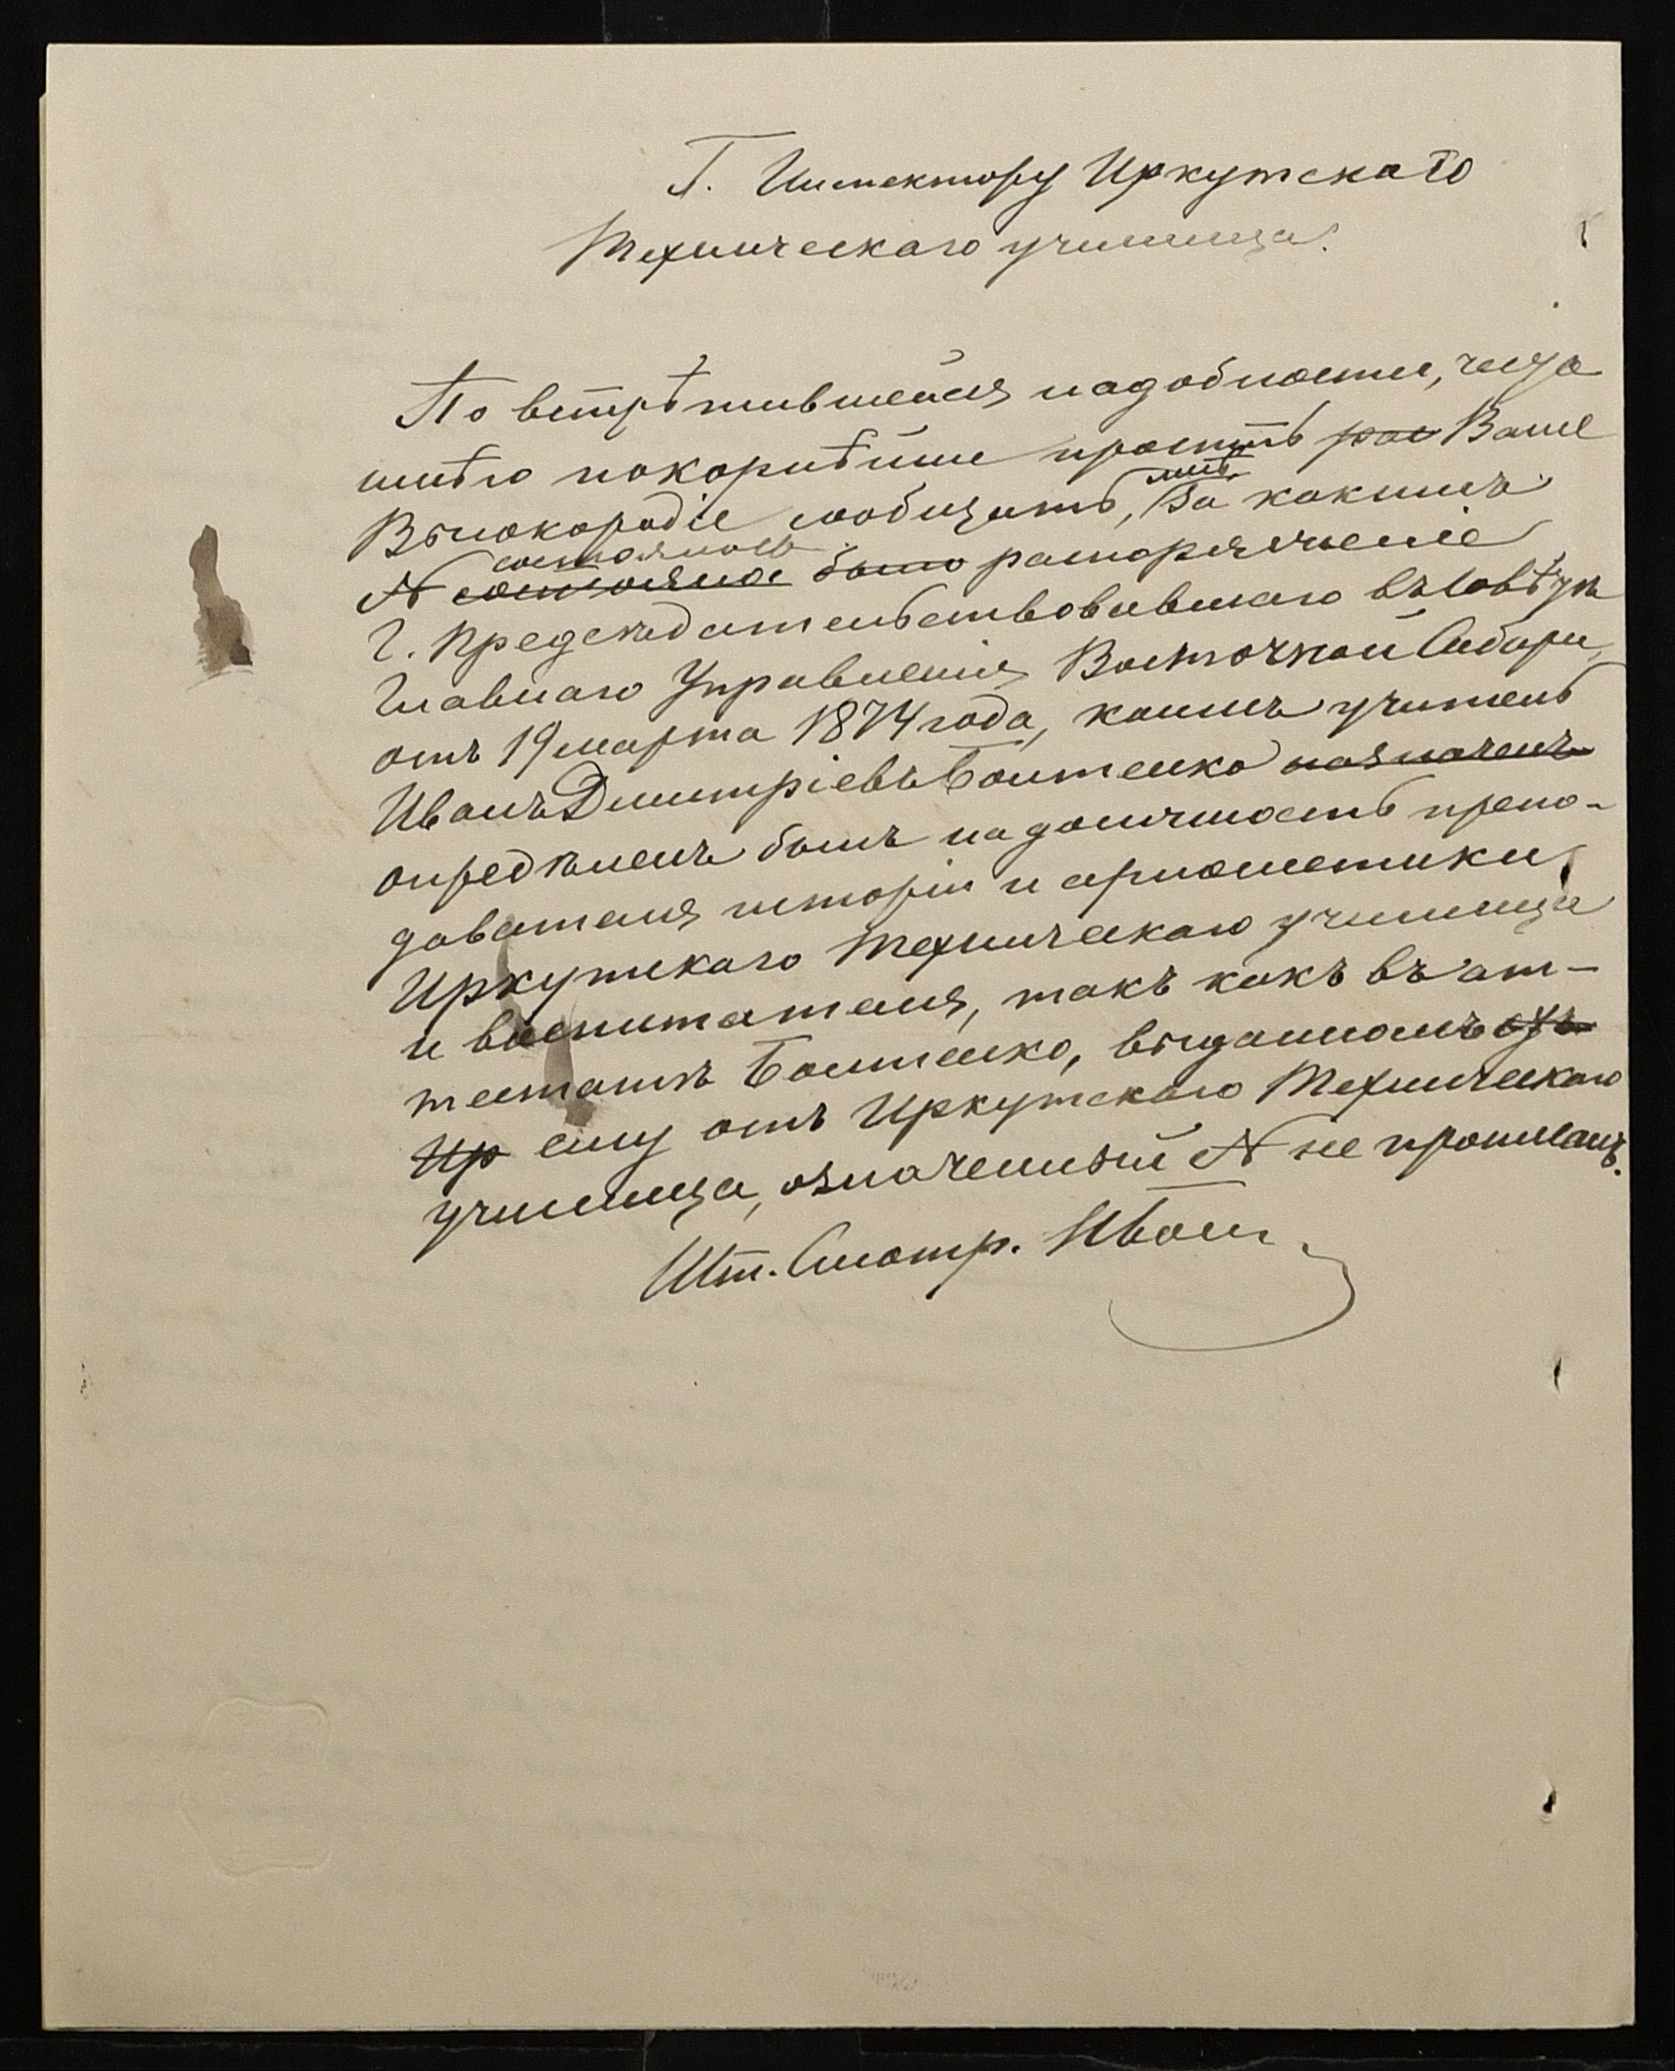 Г. Инспектору Иркутскаго
Техническаго училища.
По встрѣтившейся надобности, честь
имѣю покорнѣйше просить Ваше
Высокородіе сообщить, мнѣ, за какимъ
состоялось
№ состоялна было распоряженіе
Г. Предсѣдательствовавшаго въ Совѣтѣ
Главнаго Управленія Восточной Сибири,
отъ 19 марта 1874 года, коимъ учитель
Иванъ Дмитріевъ Болтенко назначенъ
опредѣленъ былъ на должность препо-
давателя исторіи и ариѳметики
Иркутскаго Техническаго училища
и воспитателя, такъ какъ въ ат-
тестатѣ Болтенко, выданномъ
Ир ему отъ Иркутскаго Техническаго
училища, означенный № не прописанъ.
Шт. Смотр. Иван